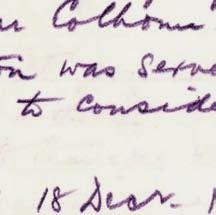 Colhoun
was serve
to conside
18 Decr.